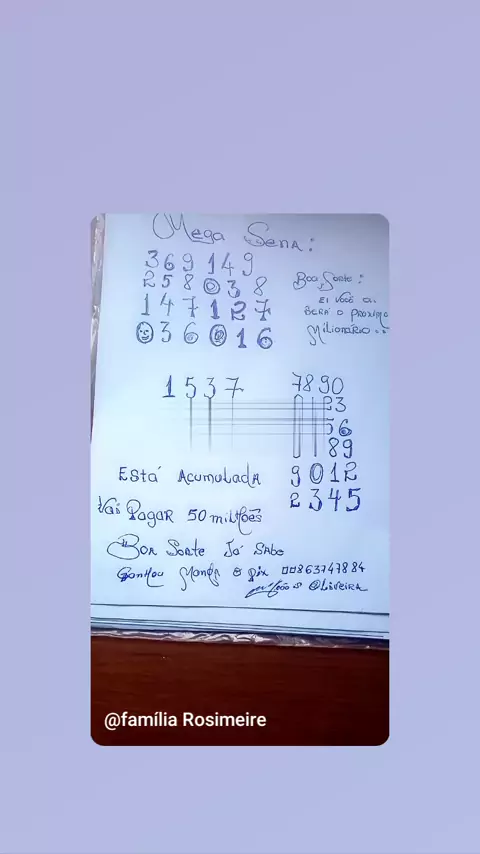 Mega Sena:
369 149
258 038
147 127
036 016
Boa Sorte:
EI Você ai
SERÁ O PROXIMO
Milionario
1537
7890
23
56
89
9012
2345
ESTÁ ACUMULADA
Vai Pagar 50 milhões
BOA SORTE JÁ SABE
Ganhou Manda o pix 00863747884
OLIVEIRA
@família Rosimeire